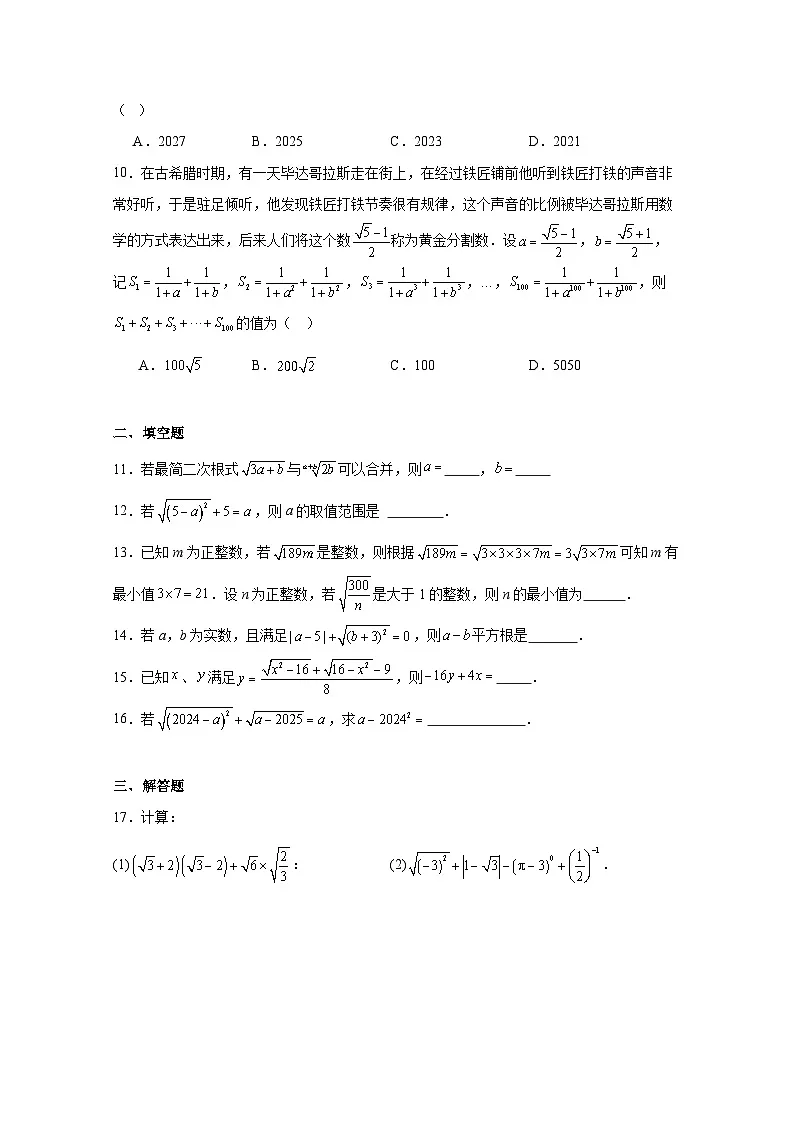 （ ）
A．2027 B．2025 C．2023 D．2021
10．在古希腊时期，有一天毕达哥拉斯走在街上，在经过铁匠铺前他听到铁匠打铁的声音非
常好听，于是驻足倾听，他发现铁匠打铁节奏很有规律，这个声音的比例被毕达哥拉斯用数
学的方式表达出来，后来人们将这个数 (√5−1)/2 称为黄金分割数．设 a=(√5−1)/2，b=(√5+1)/2，
记 S₁=1/(1+a)+1/(1+b)，S₂=1/(1+a²)+1/(1+b²)，S₃=1/(1+a³)+1/(1+b³)，…，S₁₀₀=1/(1+a¹⁰⁰)+1/(1+b¹⁰⁰)，则
S₁+S₂+S₃+⋯+S₁₀₀ 的值为（ ）
A．100√5 B．200√2 C．100 D．5050
二、填空题
11．若最简二次根式 √(3a+b) 与 ᵃ⁺ᵇ√(2b) 可以合并，则 a=_____，b=_____
12．若 √((5−a)²)+5=a，则 a 的取值范围是 ________．
13．已知 m 为正整数，若 √(189m) 是整数，则根据 √(189m)=√(3×3×3×7m)=3√(3×7m) 可知 m 有
最小值 3×7=21．设 n 为正整数，若 √(300/n) 是大于 1 的整数，则 n 的最小值为______．
14．若 a，b 为实数，且满足 |a−5|+√((b+3)²)=0，则 a−b 平方根是_______．
15．已知 x、y 满足 y=(√(x²−16)+√(16−x²)−9)/8，则 −16y+4x=_____．
16．若 √((2024−a)²)+√(a−2025)=a，求 a−2024²=______________．
三、解答题
17．计算：
(1)(√3+2)(√3−2)+√6×√(2/3)： (2)√((−3)²)+|1−√3|−(π−3)⁰+(1/2)⁻¹．